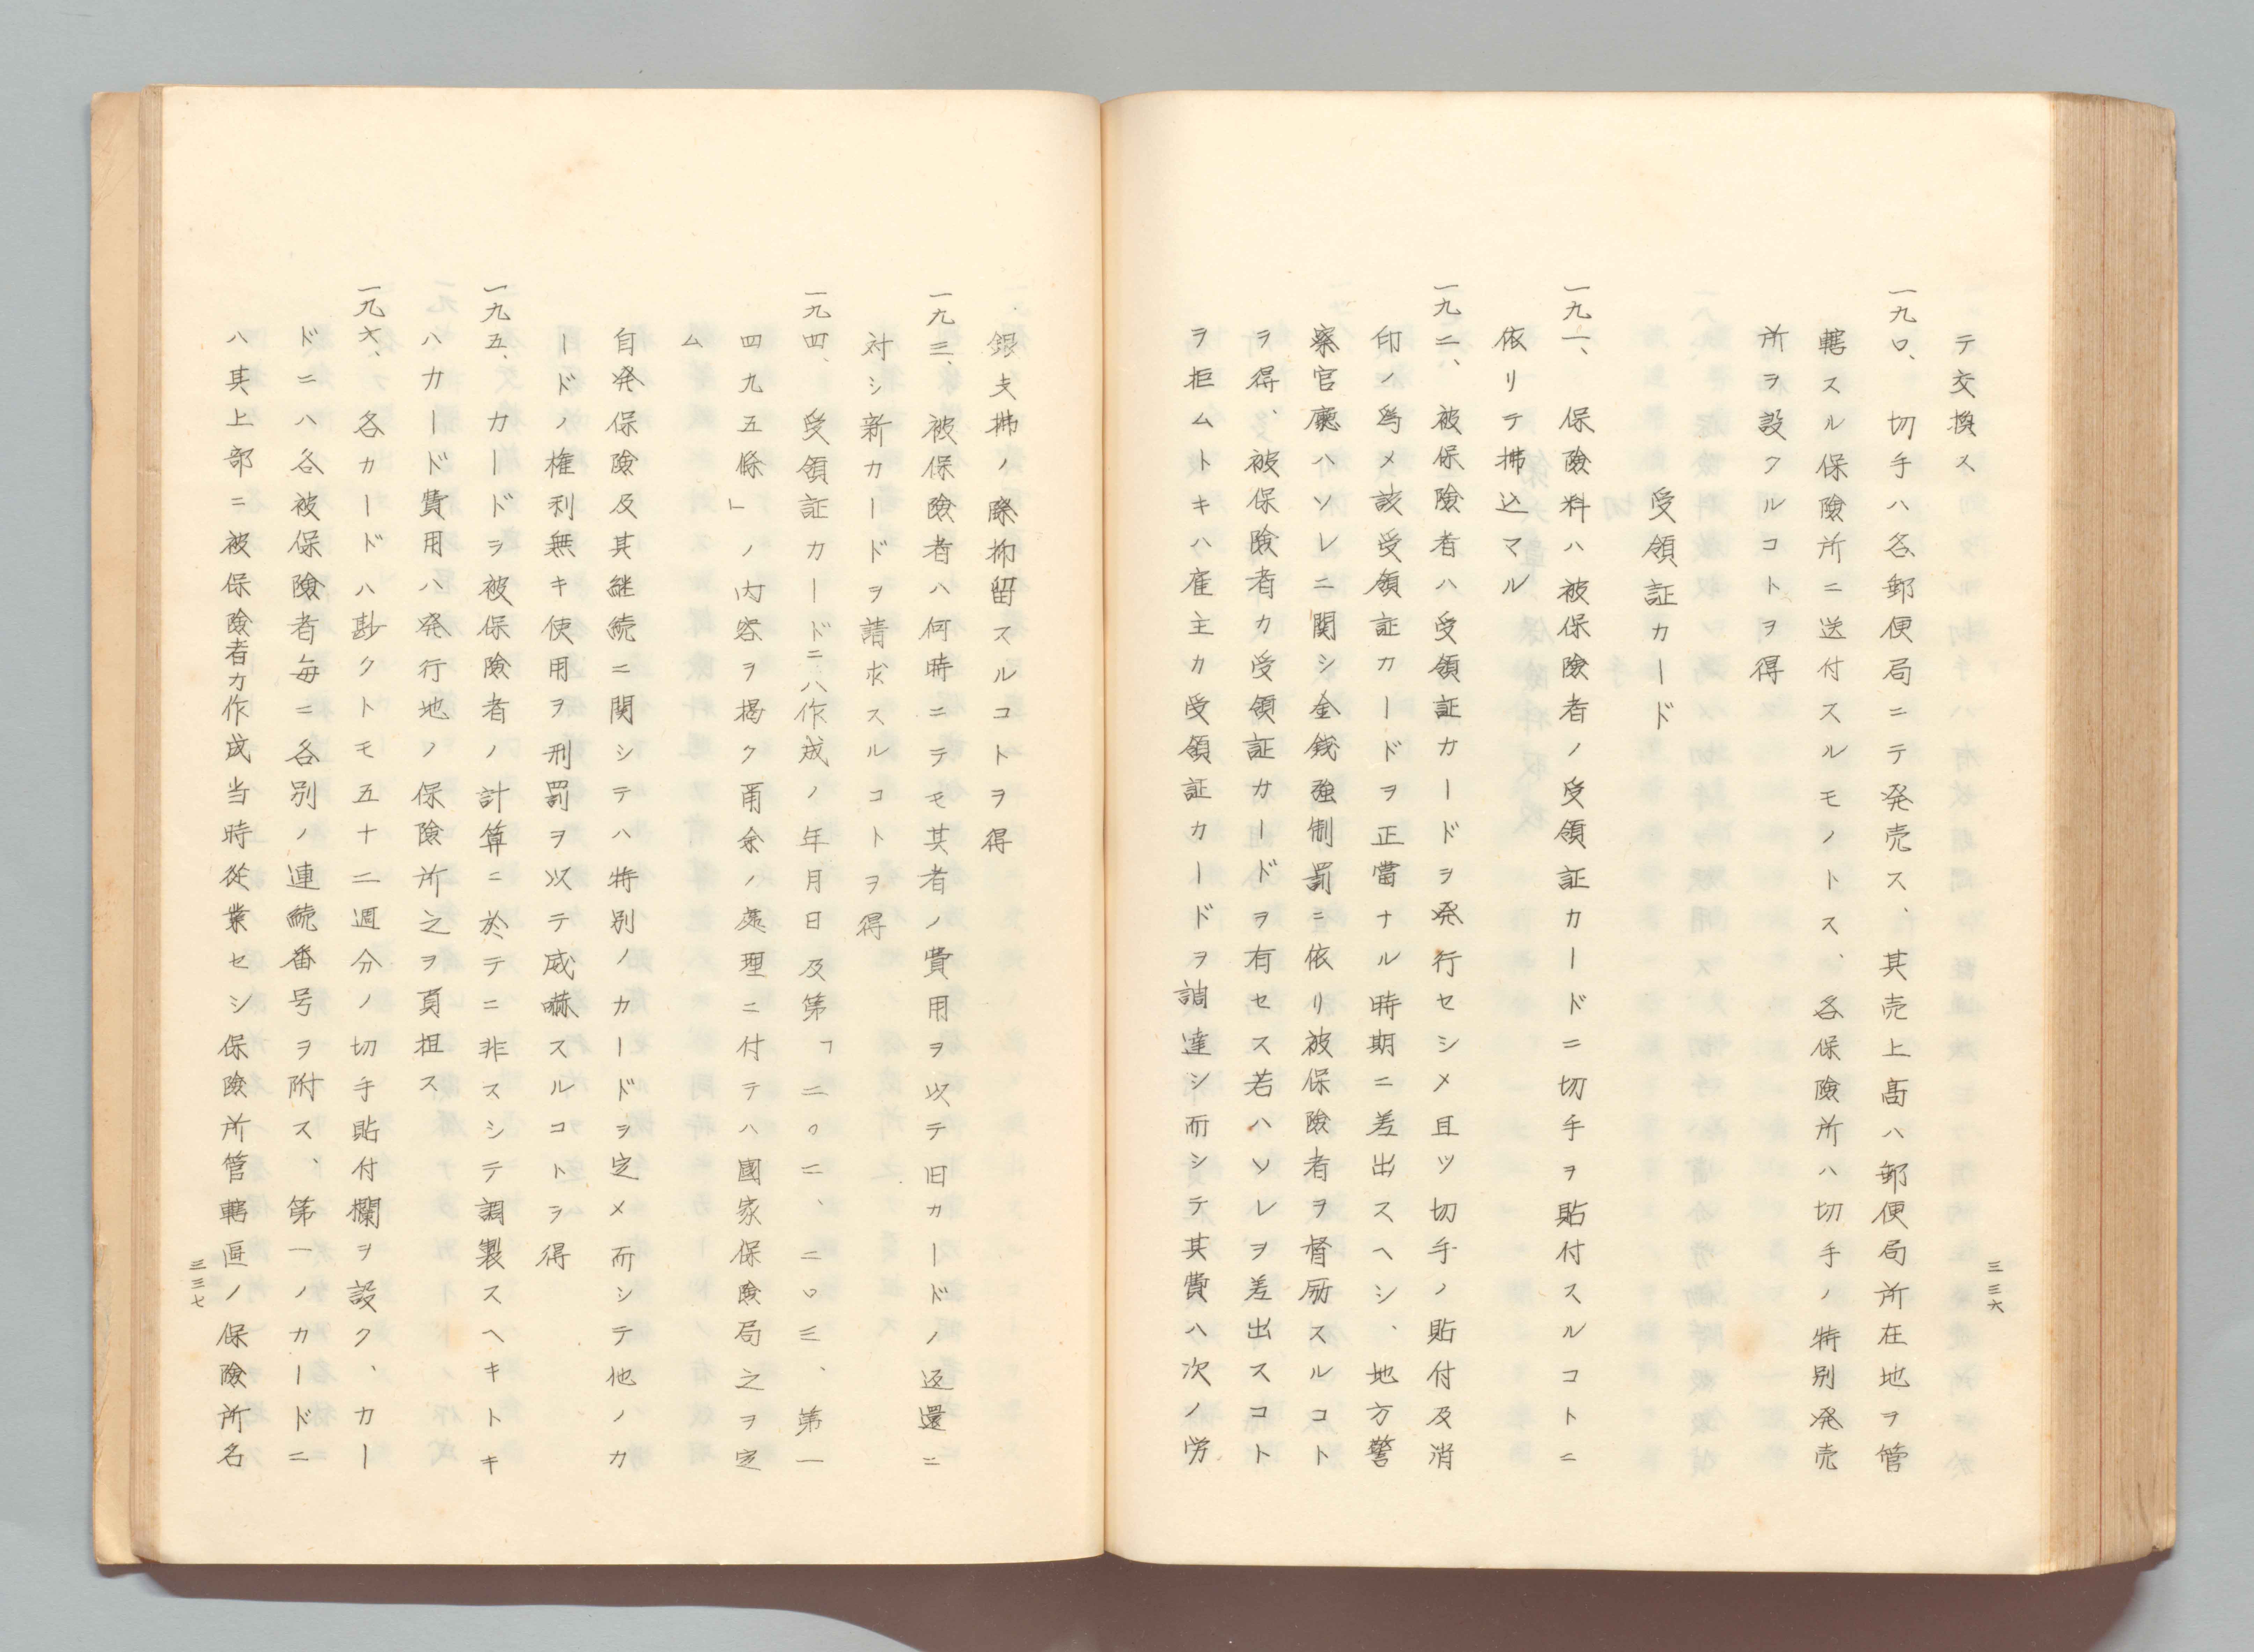 三三六
テ交換ス
一九〇、切手ハ各郵便局ニテ発売ス、其売上高ハ郵便局所在地ヲ管
轄スル保険所ニ送付スルモノトス、各保険所ハ切手ノ特別発売
所ヲ設クルコトヲ得
受領証カード
一九一、保険料ハ被保険者ノ受領証カードニ切手ヲ貼付スルコトニ
依リテ拂込マル
一九二、被保険者ハ受領証カードヲ発行セシメ且ツ切手ノ貼付及消
印ノ爲メ該受領証カードヲ正當ナル時期ニ差出スヘシ、地方警
察官廳ハソレニ関シ金銭強制罰ニ依リ被保険者ヲ督励スルコト
ヲ得、被保険者カ受領証カードヲ有セス若ハソレヲ差出スコト
ヲ拒ムトキハ雇主カ受領証カードヲ調達シ而シテ其費ハ次ノ労
銀支拂ノ際抑留スルコトヲ得
一九三、被保険者ハ何時ニテモ其者ノ費用ヲ以テ旧カードノ返還ニ
対シ新カードヲ請求スルコトヲ得
一九四、受領証カードニハ作成ノ年月日及第「二〇二、二〇三、第一
四九五條」ノ内容ヲ掲ク爾余ノ處理ニ付テハ國家保険局之ヲ定
ム
自発保険及其継続ニ関シテハ特別ノカードヲ定メ而シテ他ノカ
ードノ権利無キ使用ヲ刑罰ヲ以テ威嚇スルコトヲ得
一九五、カードヲ被保険者ノ計算ニ於テニ非スシテ調製スヘキトキ
ハカード費用ハ発行地ノ保険所之ヲ負担ス
一九六、各カードハ尠クトモ五十二週分ノ切手貼付欄ヲ設ク、カー
ドニハ各被保険者毎ニ各別ノ連続番号ヲ附ス、第一ノカードニ
ハ其上部ニ被保険者カ作成当時從業セシ保険所管轄区ノ保険所名
三三七